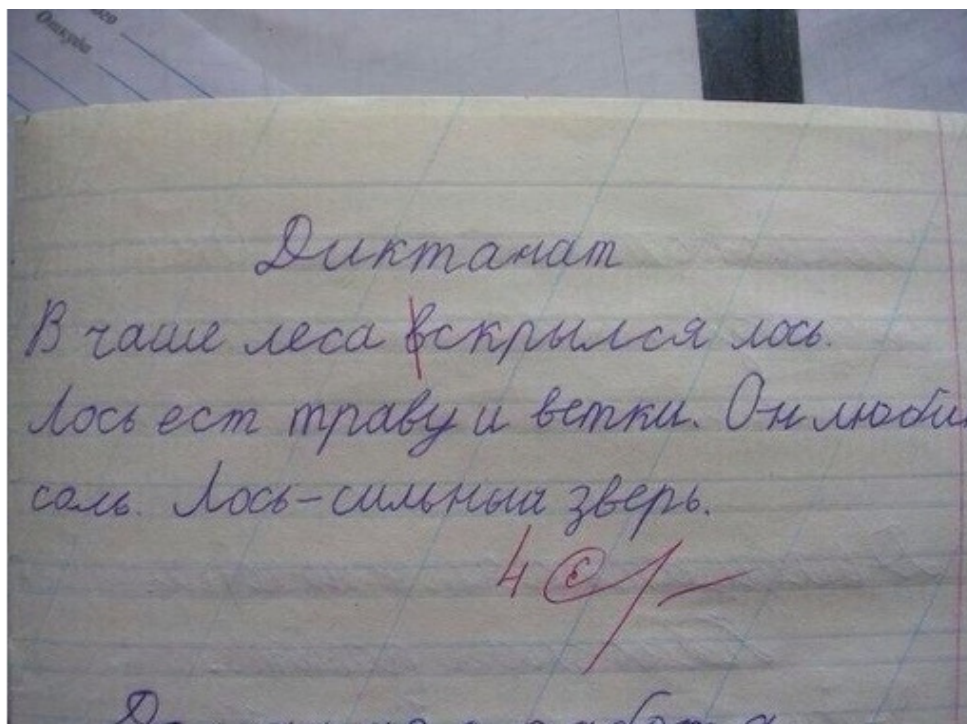 Откуда
Диктанат
В чаше леса вскрылся лось.
Лось ест траву и ветки. Он люби
соль. Лось-сильный зверь.
4